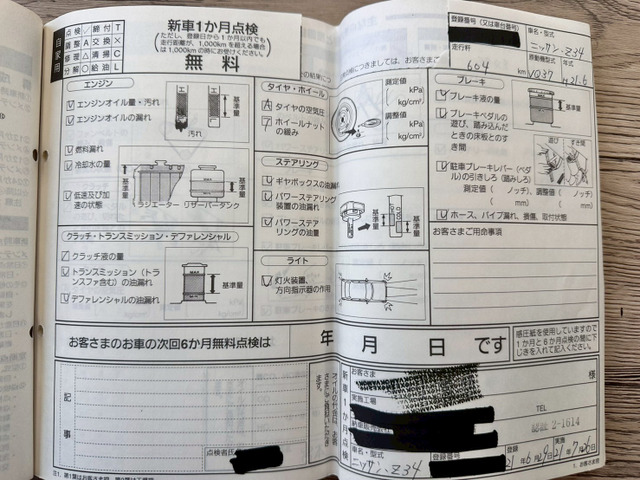 自家用
点検 ✓ 締付 T
調整 A 交換 ×
修理 △ 清掃 C
分解 ○ 給油 L
新車1か月点検
(ただし、登録日から1か月以内でも
走行距離が、1,000kmを超える場合
は1,000km の時にお受けください。)
無料
登録番号(又は車台番号)
車名・型式
ニッサン・Z34
走行杵
604
原動機型式
VQ37
エンジン
エンジンオイル量・汚れ
エンジンオイルの漏れ
燃料漏れ
冷却水の量
低速及び加
速の状態
汚れ
基準量
ラジエーター
リザーバータンク
クラッチ・トランスミッション・デファレンシャル
クラッチ液の量
トランスミッション(トラ
ンスファ含む)の油漏れ
デファレンシャルの油漏れ
基準量
タイヤ・ホイール
A タイヤの空気圧
T ホイールナット
の緩み
測定値
kPa
kg/cm²
調整値
kPa
kg/cm²
ステアリング
ギヤボックスの油漏れ
パワーステアリング
装置の油漏れ
パワーステア
リングの油量
基準量
ライト
灯火装置、
方向指示器の作用
ブレーキ
ブレーキ液の量
ブレーキペダルの
遊び、踏み込んだ
ときの床板とのす
き間
基準量
遊び
すき間
駐車ブレーキレバー(ペダ
ル)の引きしろ(踏みしろ)
測定値( ノッチ)、調整値( ノッチ)
( mm) ( mm)
ホース、パイプ漏れ、損傷、取付状態
お客さまご用命事項
お客さまのお車の次回6か月無料点検は 年 月 日 です
感圧紙を使用していますので
1か月と6か月点検の間に下
じきを入れて記入ください。
記事
点検者氏
新車1か月点検
お客さま
様
実施工場
TEL
認証 2-1614
車名・型式
ニッサン・Z34
登録番号
登録
21年6月29日
実施
21年7月26日
1. お客さま用